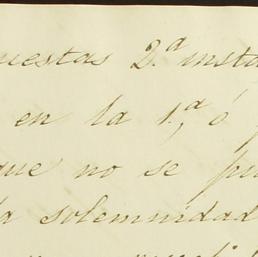 uestas 2.ª insta
en la 1.ª ó
que no se pu
la solemnidad